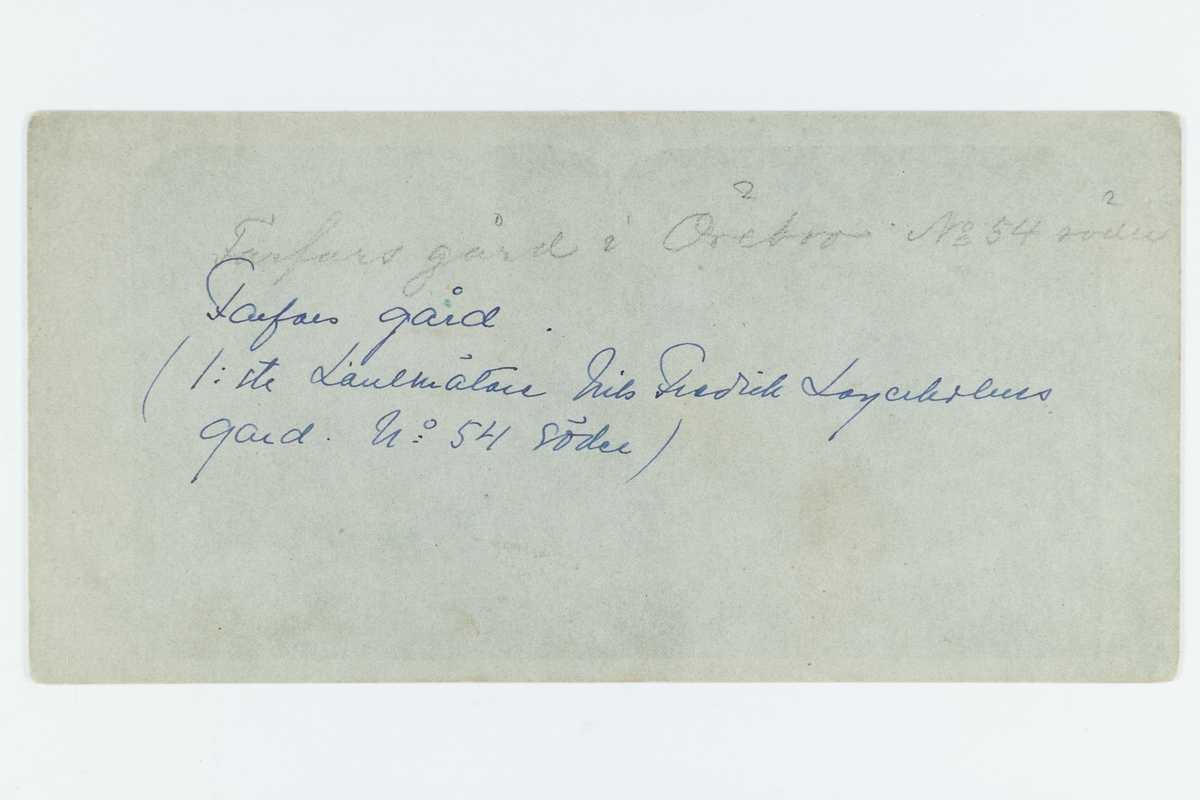 Farfars gård i Örebro No 54 söder
Farfars gård.
(1:ste Lantmätare Nils Fredrik
gård. No: 54 Söder)